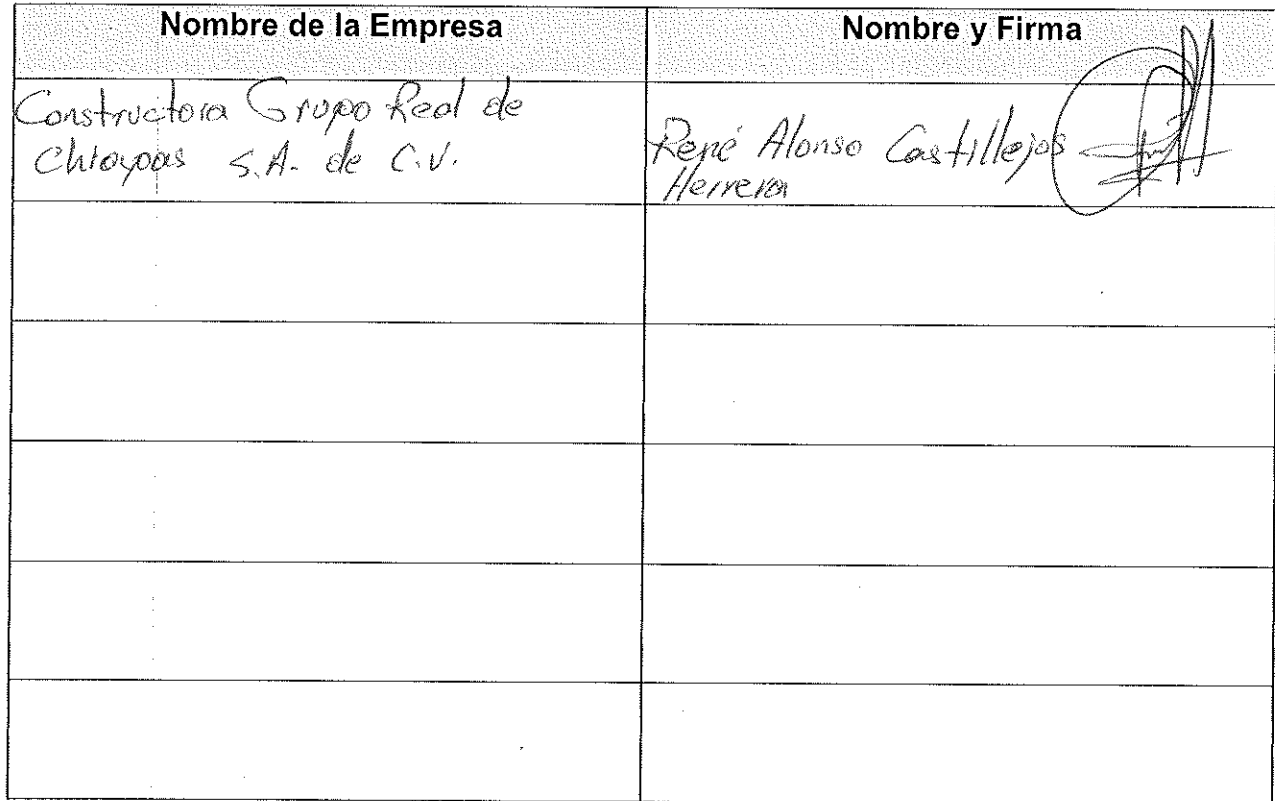 Nombre de la Empresa
Nombre y Firma
Constructora Grupo Real de
Chiapas S.A. de C.V.
René Alonso Castillejos
Herrera